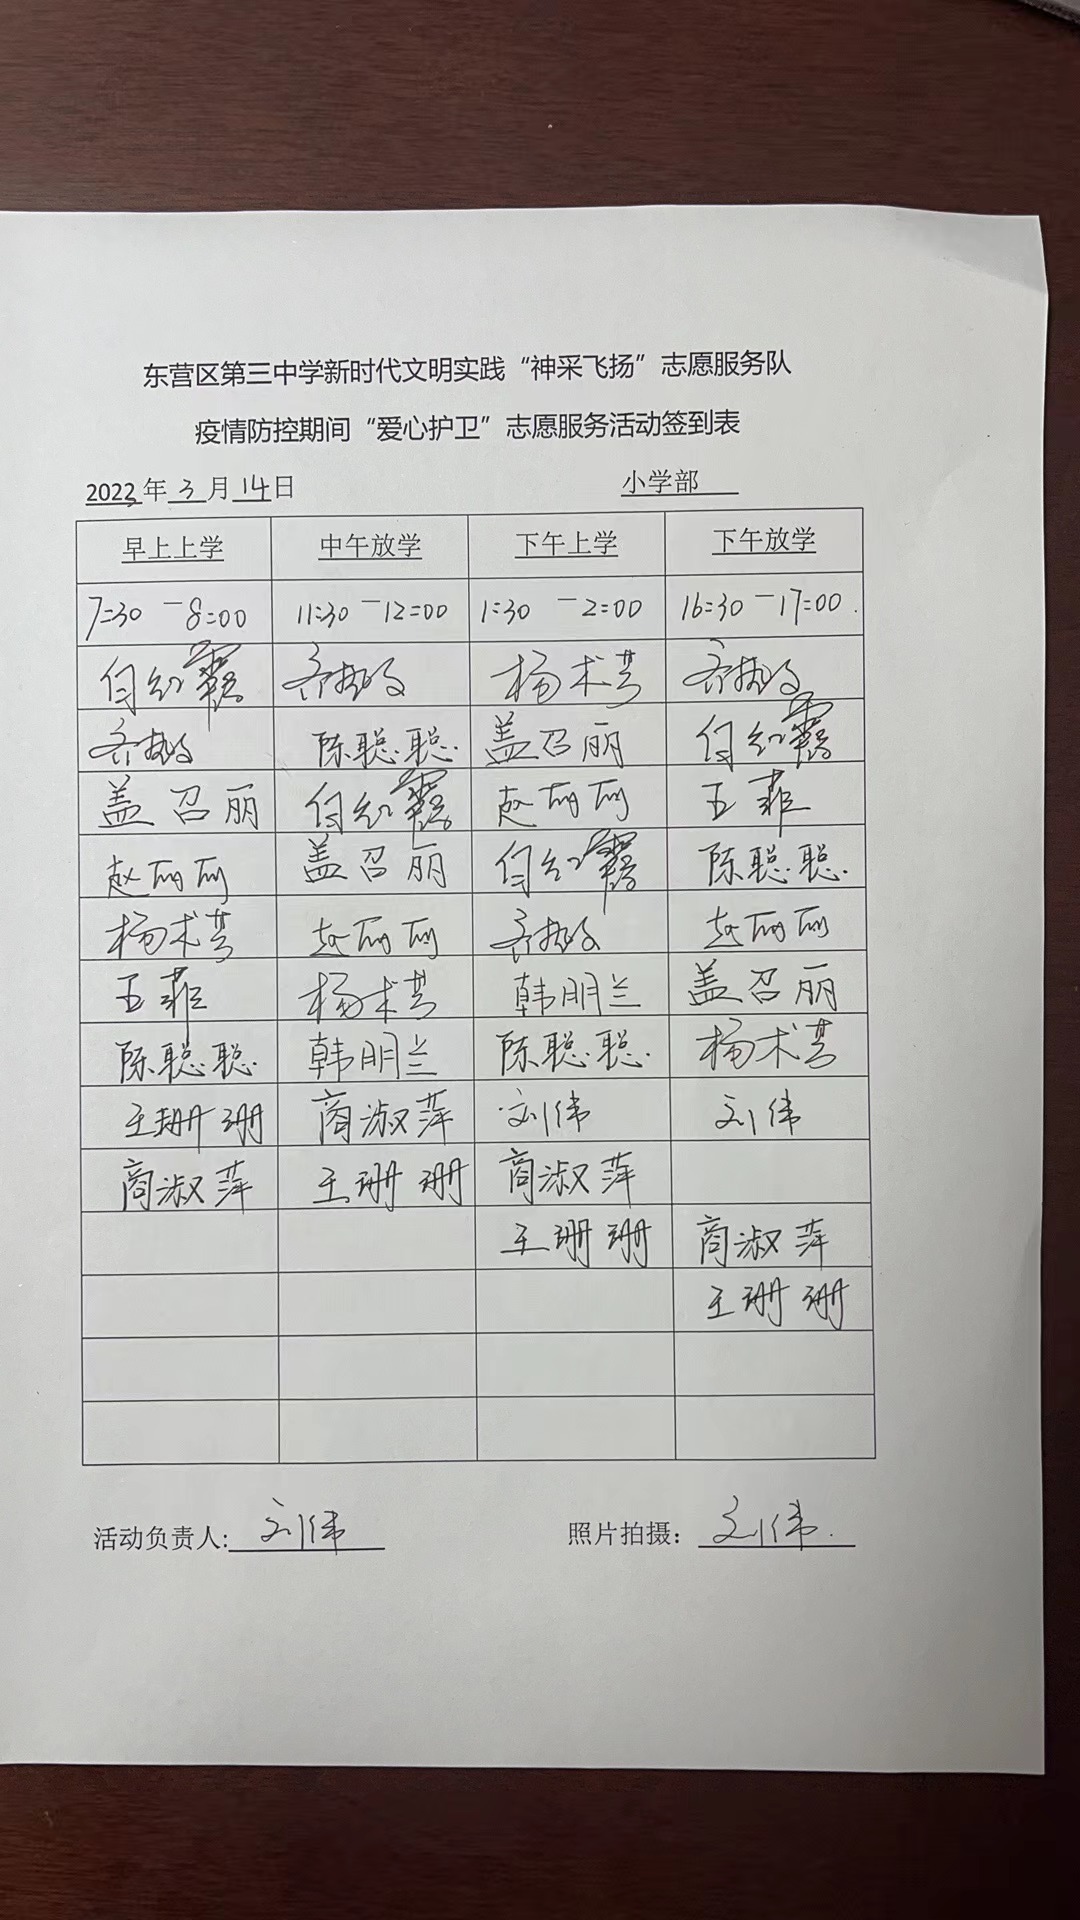 东营区第三中学新时代文明实践“神采飞扬”志愿服务队
疫情防控期间“爱心护卫”志愿服务活动签到表
2022年3月14日 小学部
早上上学 中午放学 下午上学 下午放学
7:30 - 8:00 11:30 - 12:00 1:30 - 2:00 16:30 - 17:00.
付红霞 杨术芸
陈聪聪 盖召丽 付红霞
盖召丽 付红霞 赵丽丽 王菲
赵丽丽 盖召丽 付红霞 陈聪聪
杨术芸 赵丽丽 赵丽丽
王菲 杨术芸 韩明兰 盖召丽
陈聪聪 韩明兰 陈聪聪 杨术芸
王珊珊 商淑萍 刘伟 刘伟
商淑萍 王珊珊 商淑萍
王珊珊 商淑萍
王珊珊
活动负责人:刘伟 照片拍摄：刘伟